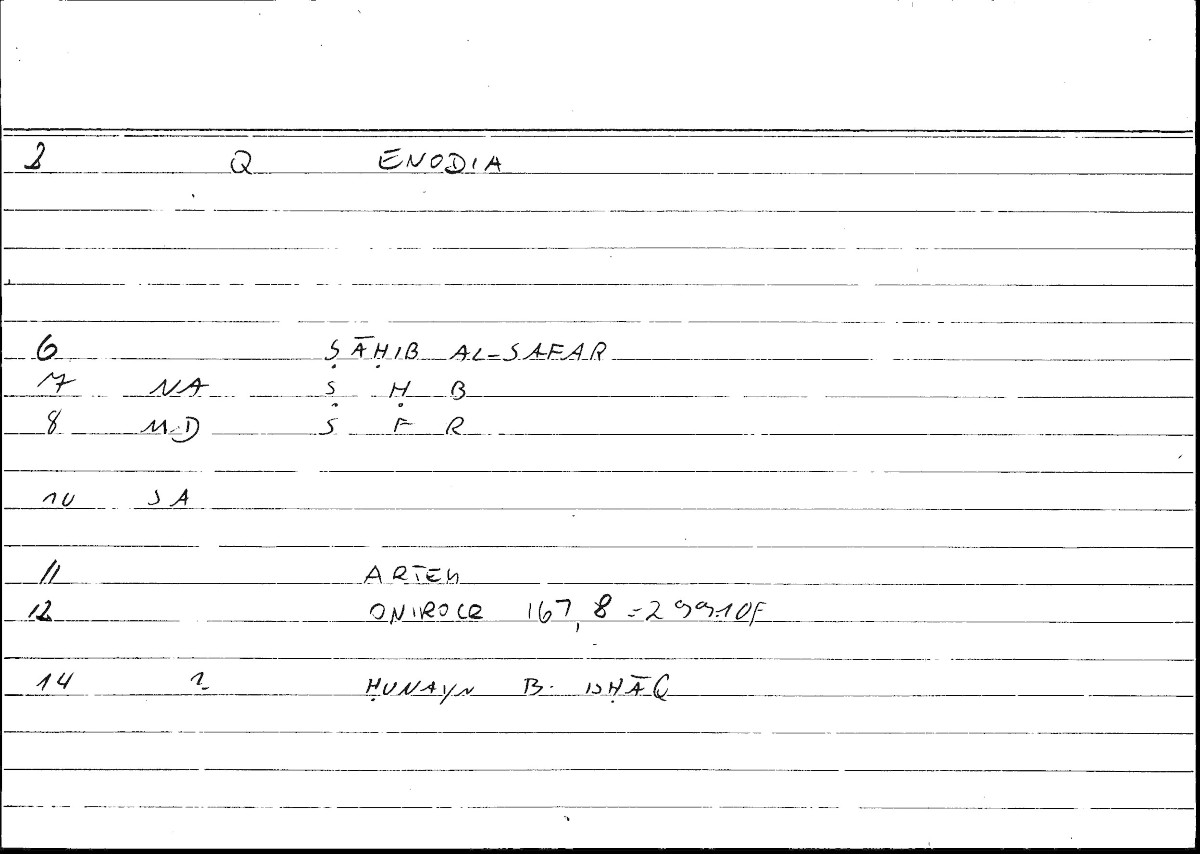 3 Q ENODIA
6 ṢĀḤIB AL-SAFAR
7 NA Ṣ Ḥ B
8 MD S F R
10 SA
11 ARTEM
12 ONIROCR 167,8 = 299.10F
14 2 ḤUNAYN B. ISḤĀQ